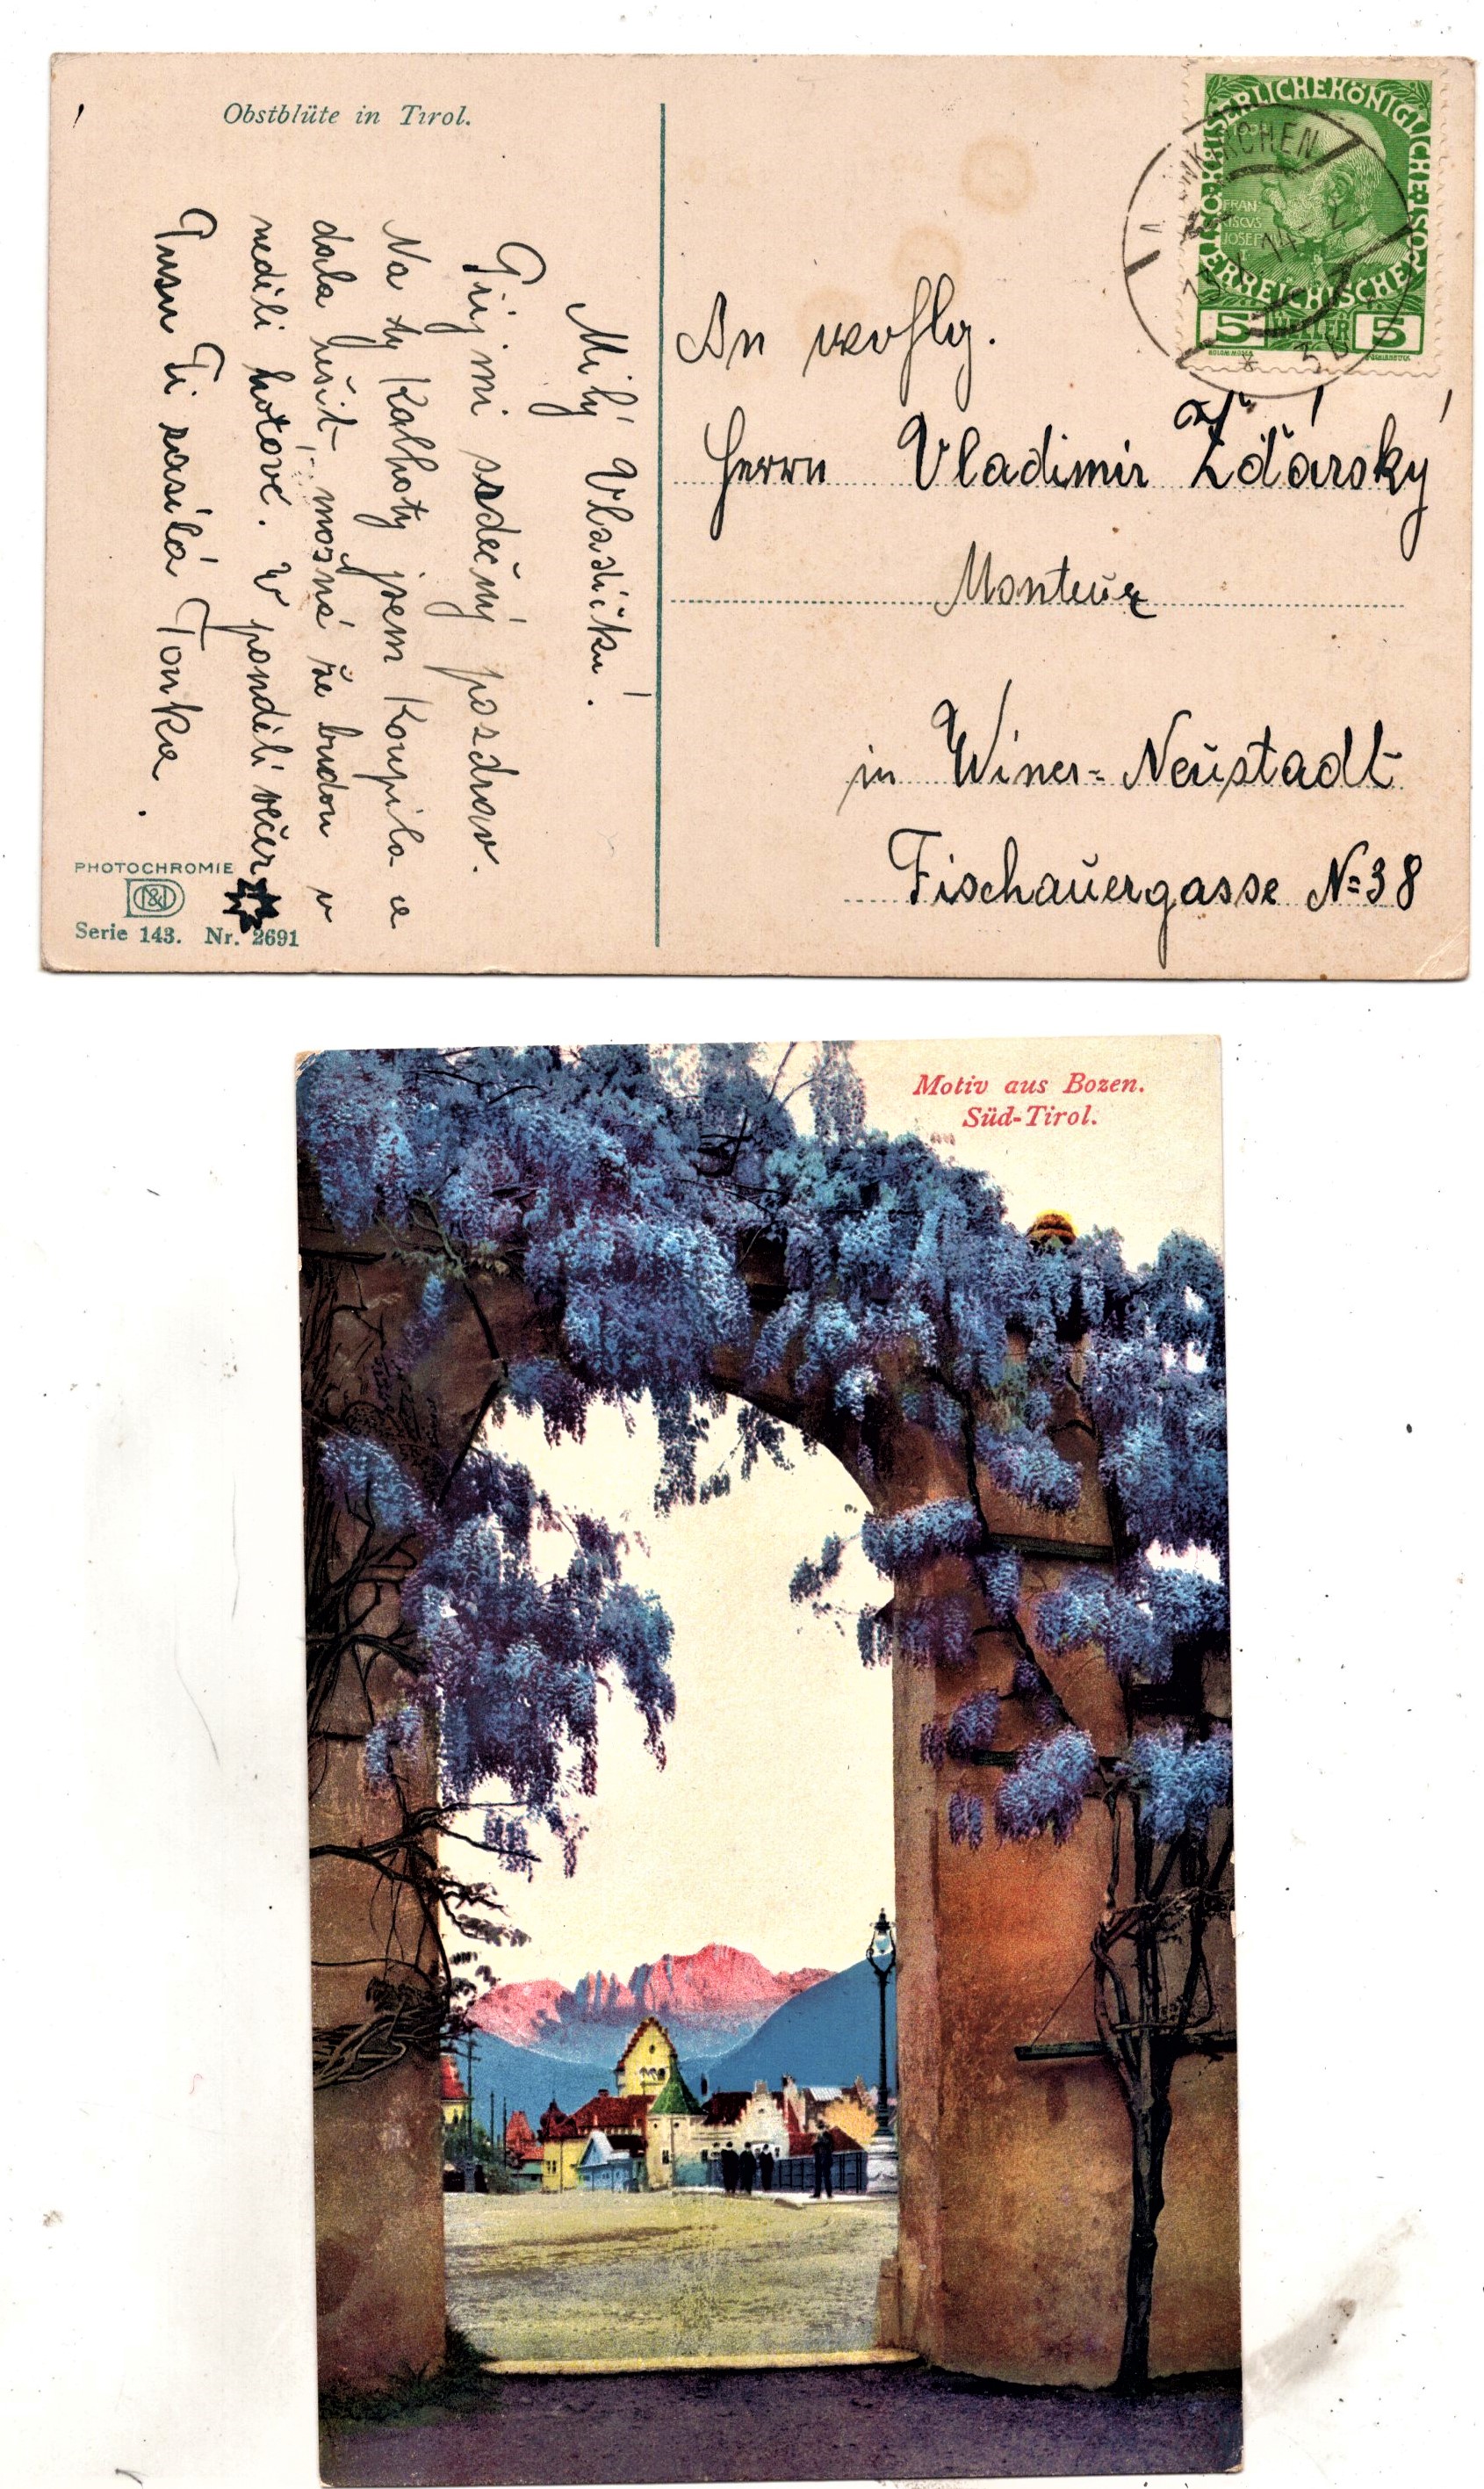 Obstblüte in Tirol.
Milý Vladíčku!
Přijmi srdečný pozdrav.
Na ty Kalhoty jsem Koupila a
dala ušit, možná že budou v
neděli hotové. V pondělí večer
Pusu Ti zasílá Tonka.
PHOTOCHROMIE
Serie 143. Nr. 2691
KAISERLICHEKÖNIGLICHE
ÖSTERREICHISCHE POST
FRAN-
CISCVS
JOSEF I
5 HELLER 5
KIRCHEN
An wohlg.
Herrn Vladimir Žďárský
Monteur
in Winer=Neustadt
Fischauergasse N=38
Motiv aus Bozen.
Süd-Tirol.